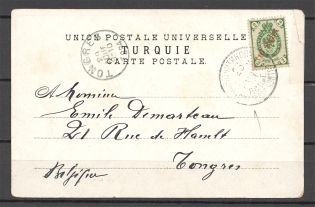 UNION POSTALE UNIVERSELLE
TURQUIE
CARTE POSTALE
TONGRES
A Monsieur
Emile Demarteau
21 Rue de Hamlt
Tongres
Belgique